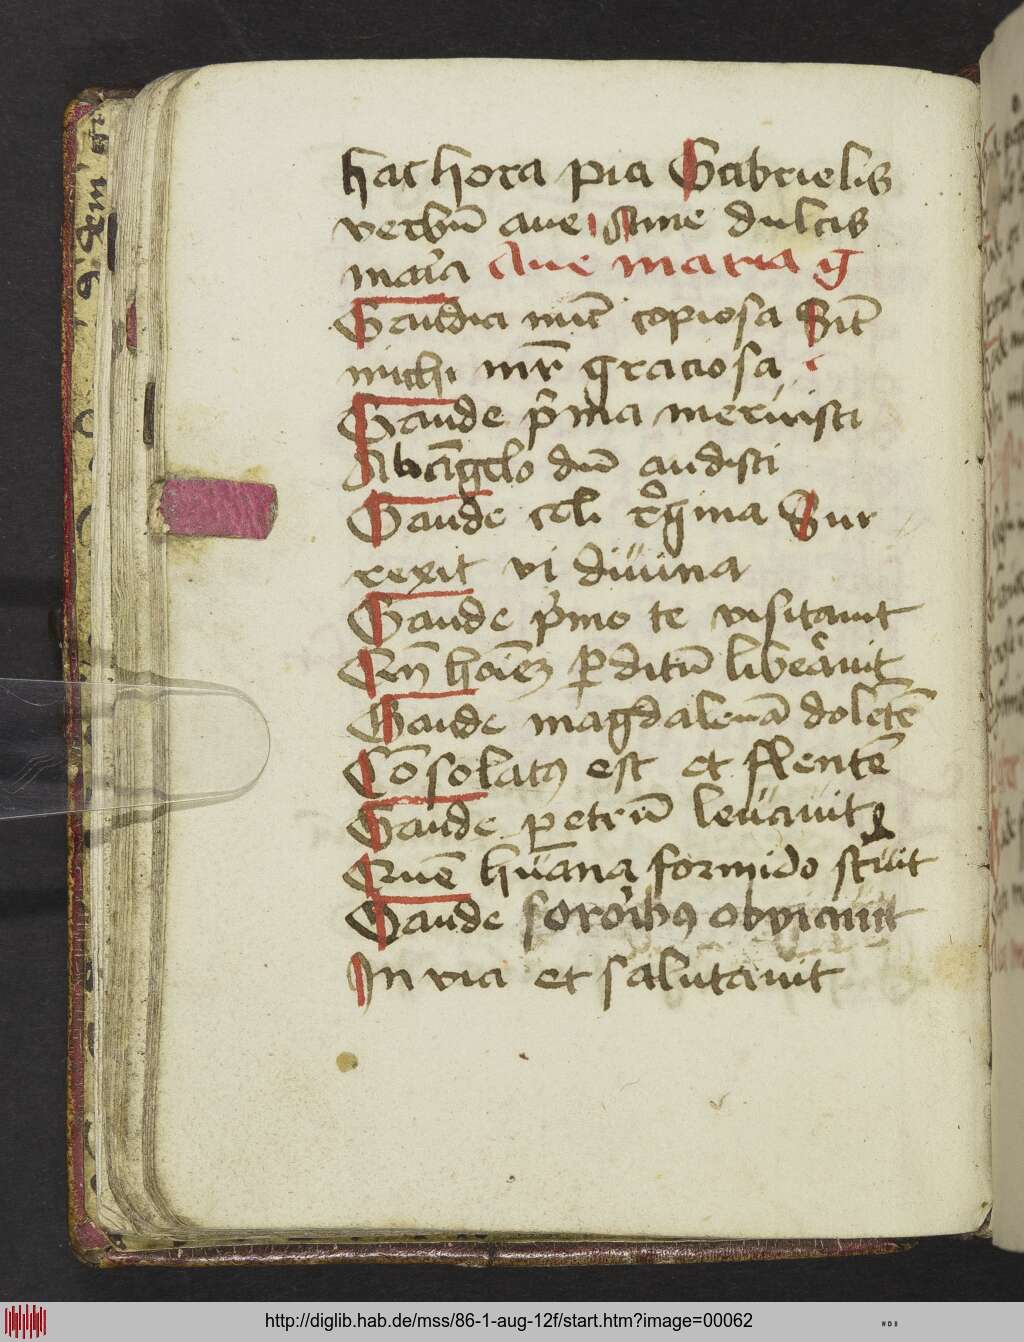 hac hora pia Gabrielis
verbū aue Sume dulcis
maria Aue maria g
Gaudia nūc copiosa Sūt
michi mr̄ graciosa
Gaude p̄ma meruisti
Ab āgelo dū audisti
Gaude celi regina Sur
rexit vi diuina
Gaude p̄mo te visitauit
Cū hoīem perditū liberauit
Gaude magdalenā dolētē
Cōsolatus est et flentē
Gaude petrū leuauit
Quē hūana formido strauit
Gaude sororibus obviauit
In via et salutauit
http://diglib.hab.de/mss/86-1-aug-12f/start.htm?image=00062